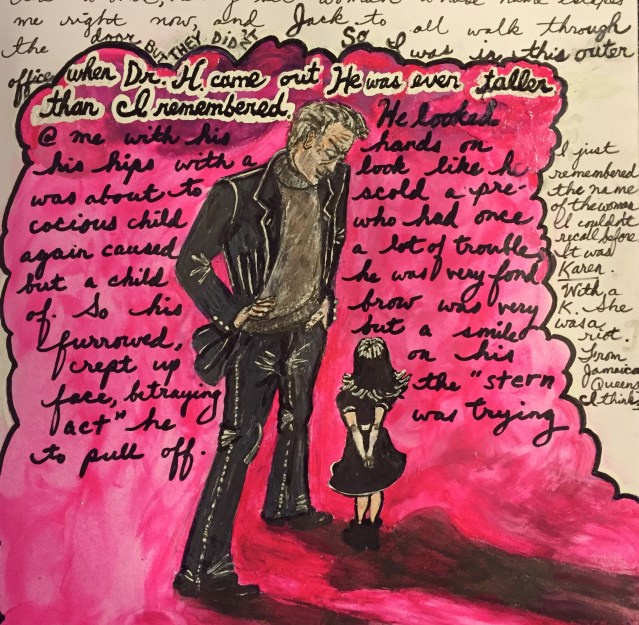 woman whose name escapes
me right now, and Jack to all walk through
the door BUT THEY DIDN'T So I was in this outer
office when Dr. H. came out He was even taller
than I remembered. He looked
@ me with his hands on
his hips with a look like he
was about to scold a pre-
cocious child who had once
again caused a lot of trouble,
but a child he was very fond
of. So his brow was very
furrowed, but a smile
crept up on his
face, betraying the "stern
act" he was trying
to pull off.
I just
remembered
the name
of the woman
I couldn't
recall before
It was
Karen.
With a
K. She
was a
riot.
From
Jamaica
Queens
I think